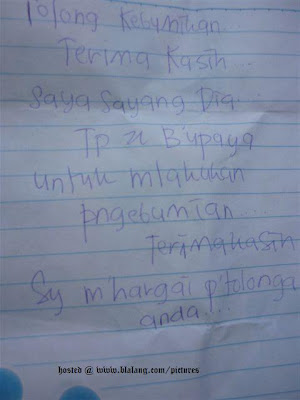 Tolong Kebumikan
Terima Kasih...
Saya Sayang Dia
Tp x B'upaya
untuk m'lakukan
pngebumian...
Terimakasih
Sy m'hargai p'tolonga
anda....
hosted @ www.blalang.com/pictures